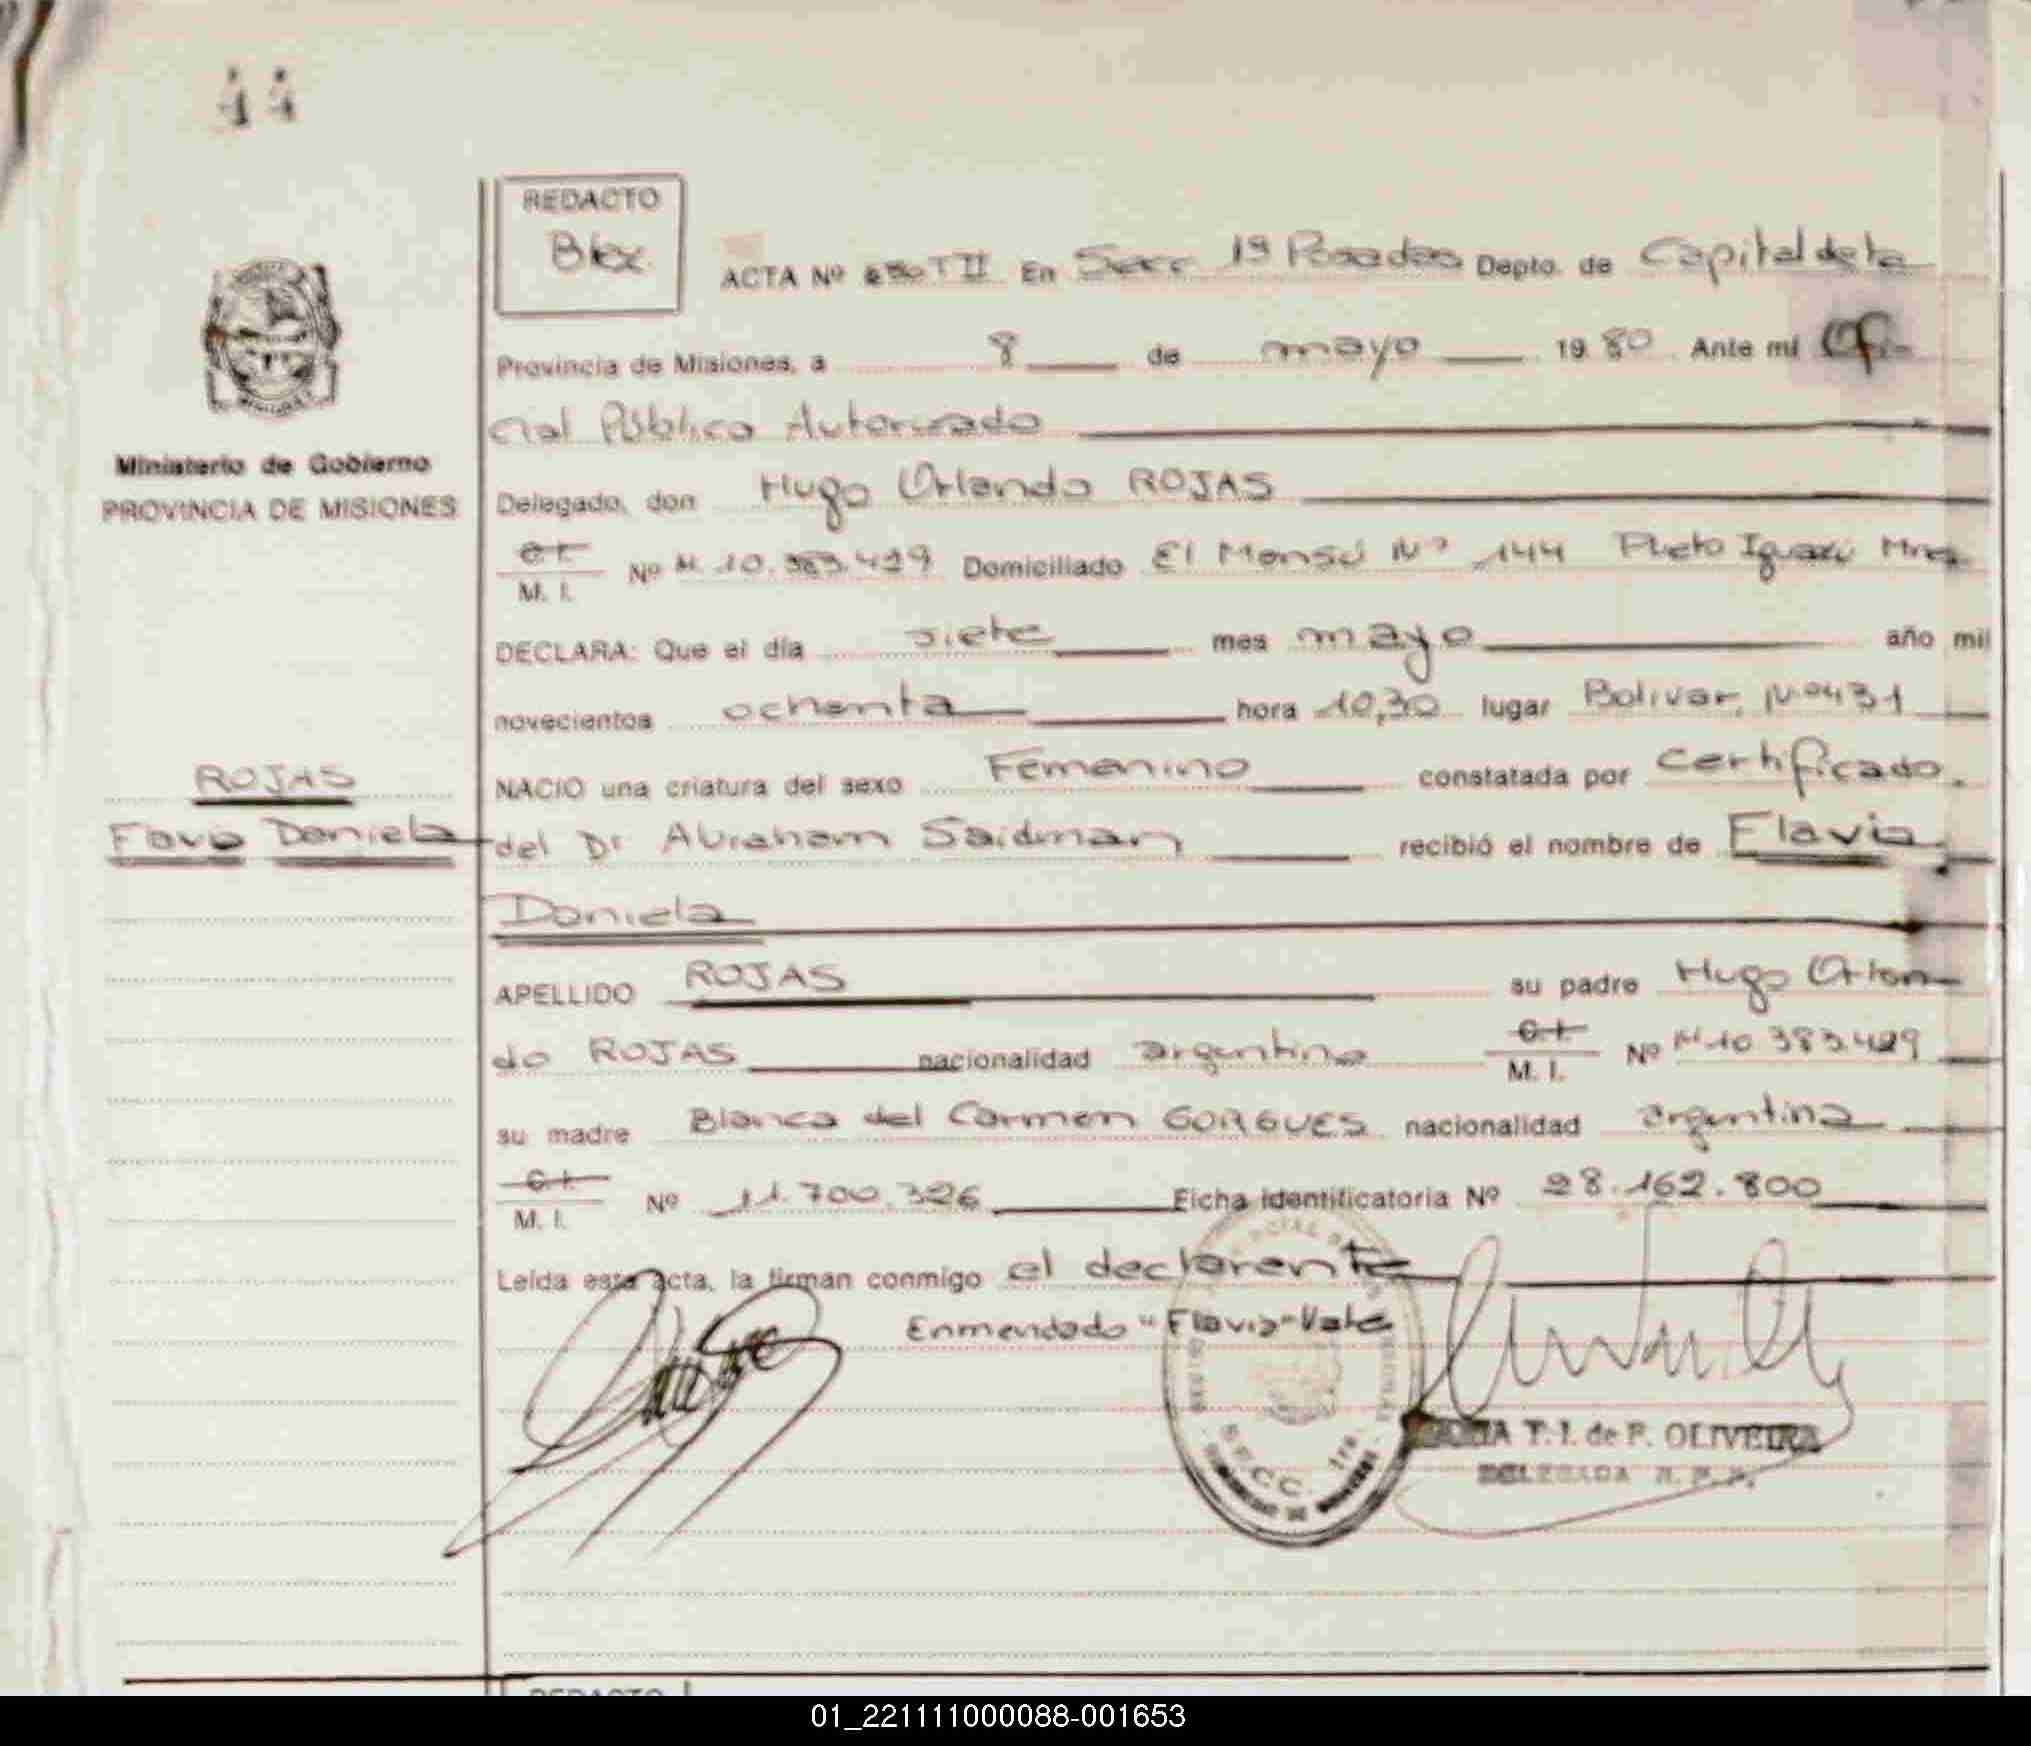 11
REDACTO
ACTA Nº T II En Secc 1ª Posadas Depto. de Capital de la
Provincia de Misiones, a 8 de mayo 1980 Ante mí Ofi-
cial Público Autorizado
Ministerio de Gobierno
PROVINCIA DE MISIONES
Delegado, don Hugo Orlando ROJAS
C.I.
M. I. Nº M. 10.383.429 Domiciliado El Mensú Nº 144 Pueto Iguazú Mnes
DECLARA: Que el día siete mes mayo año mil
novecientos ochenta hora 10,30 lugar Bolivar, Nº 431
ROJAS
NACIO una criatura del sexo Femenino constatada por certificado.
Flavia Daniela
del Dr Abraham Saidman recibió el nombre de Flavia
Daniela
APELLIDO ROJAS su padre Hugo Orlan
do ROJAS nacionalidad argentina C.I.
M. I. Nº M 10 383.429
su madre Blanca del Carmen GORGUES nacionalidad argentina
C.I.
M. I. Nº 11.700.326 Ficha identificatoria Nº 28.162.800
Leída esta acta, la firman conmigo el declarante
Enmendado "Flavia" Vale
SECC. 1ra.
T. I. de P. OLIVEIRA
DELEGADA R. P. P.
REDACTO
01_221111000088-001653